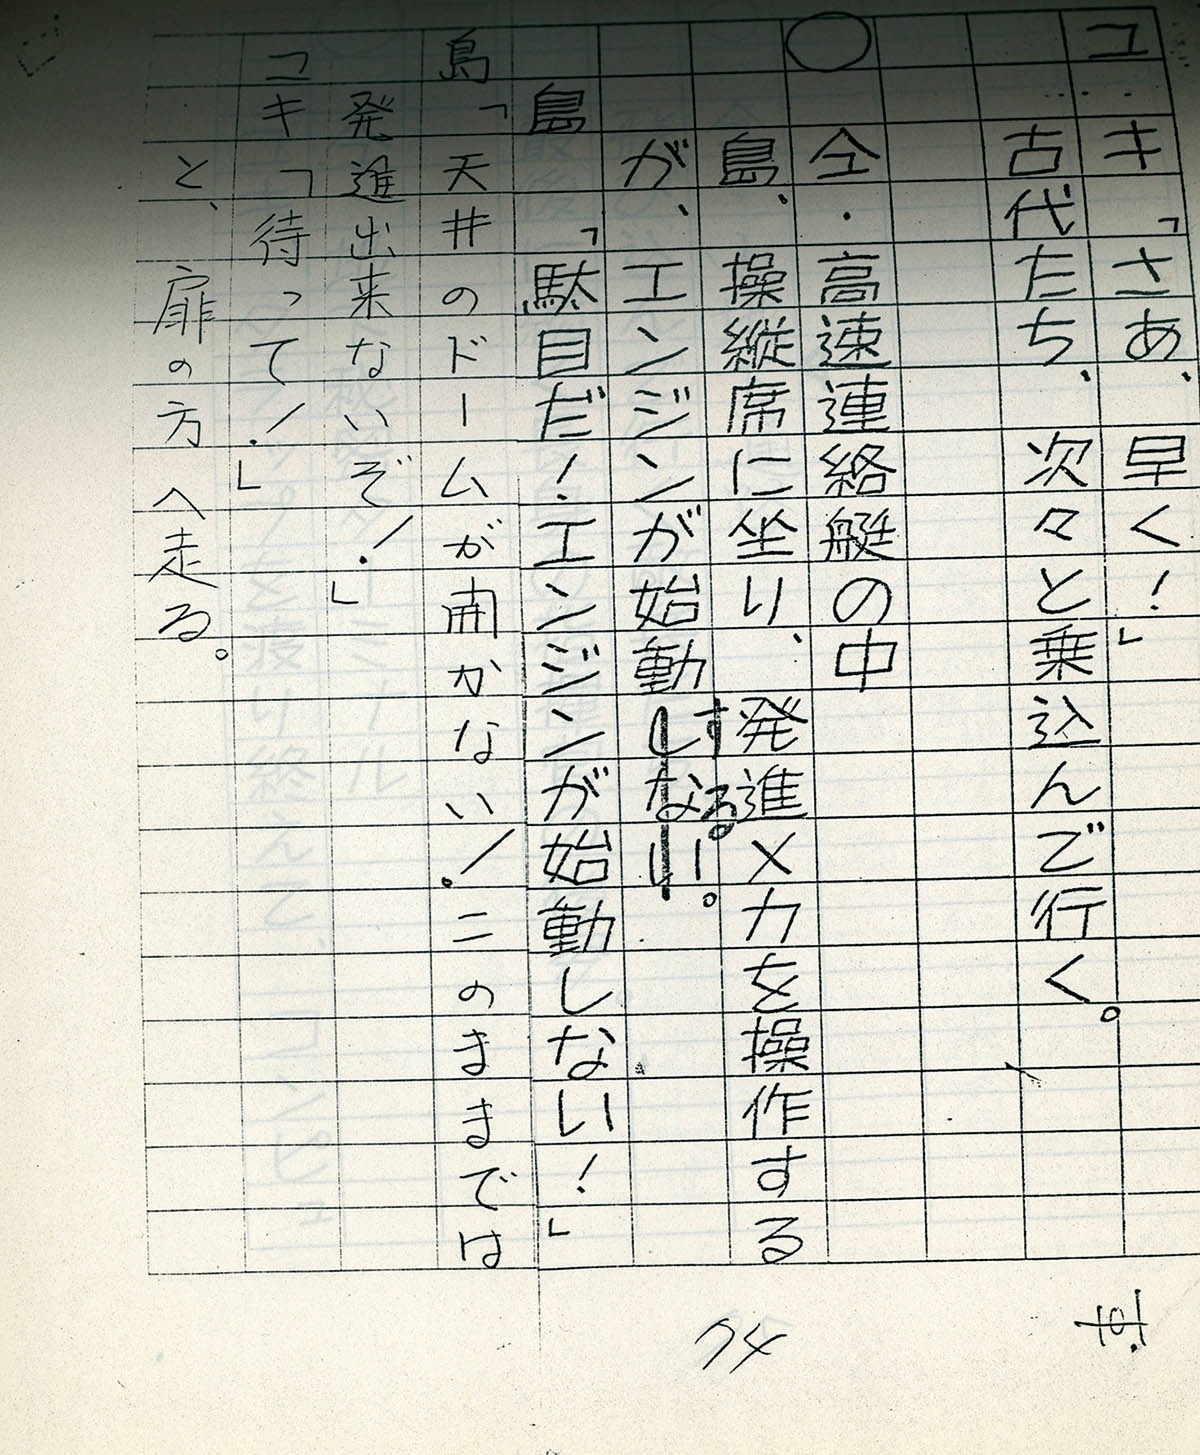 ユキ「さあ、早く!」
古代たち、次々と乗込んで行く。
○仝・高速連絡艇の中
島、操縦席に坐り、発進メカを操作する
が、エンジンが始動しない。する。
島「駄目だ!エンジンが始動しない!」
島「天井のドームが開かない!このままでは
発進出来ないぞ!」
ユキ「待って!」
と、扉の方へ走る。
74
101